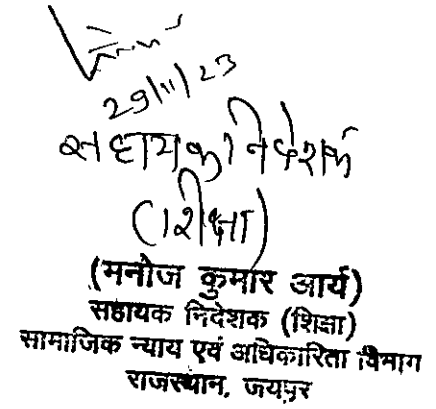 29/11/23
सहायक निदेशक
(शिक्षा)
(मनोज कुमार आर्य)
सहायक निदेशक (शिक्षा)
सामाजिक न्याय एवं अधिकारिता विभाग
राजस्थान, जयपुर